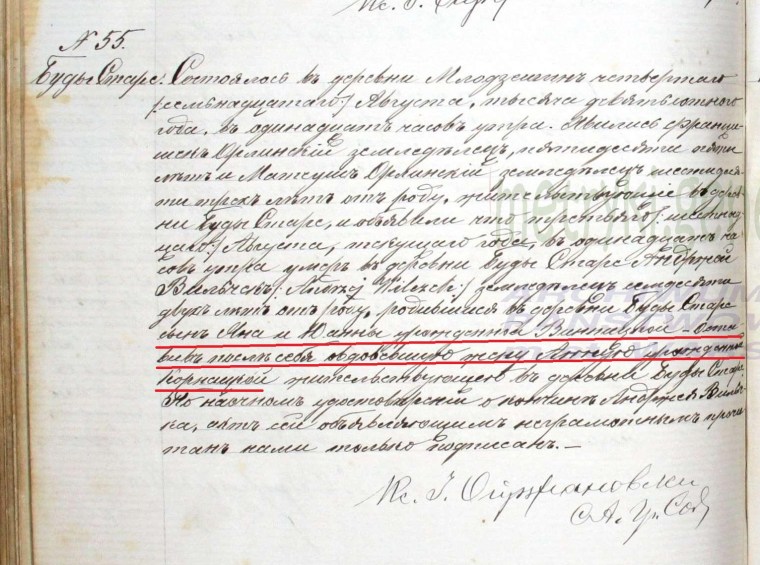 N 55.
Буды Старе. Состоялось въ деревни Млодзешинъ четвертаго
/семьнадцатаго/ Августа, тысяча девятьсотнаго
года, въ одинадцать часовъ утра. Явились Франци-
шекъ Орлинскій земледѣлецъ, пятидесяти пяти
лѣтъ и Матеушъ Орлинскій земледѣлецъ шестидеся-
ти трехъ лѣтъ отъ роду, жительствующіе въ дерев-
ни Буды Старе, и объявили что третьяго /шестнад-
цатаго/ Августа, текущаго года, въ одинадцать ча-
совъ утра умеръ въ деревни Буды Старе Андржей
Вильчекъ /Andrzej Wilczek/ земледѣлецъ семьдесяти
двухъ лѣтъ отъ роду, родившійся въ деревни Буды Старе
сынъ Яна и урожденной Оста-
вивъ послѣ себя овдовѣвшую жену Анну урожденную
жительствующую въ деревни Буды Старе
По наочномъ удостовѣреніи о кончинѣ Андржея Вильч-
ка, актъ сей объявляющимъ неграмотнымъ прочи-
танъ нами только подписанъ. —
Кс. І.
С. А. Гр. Сос